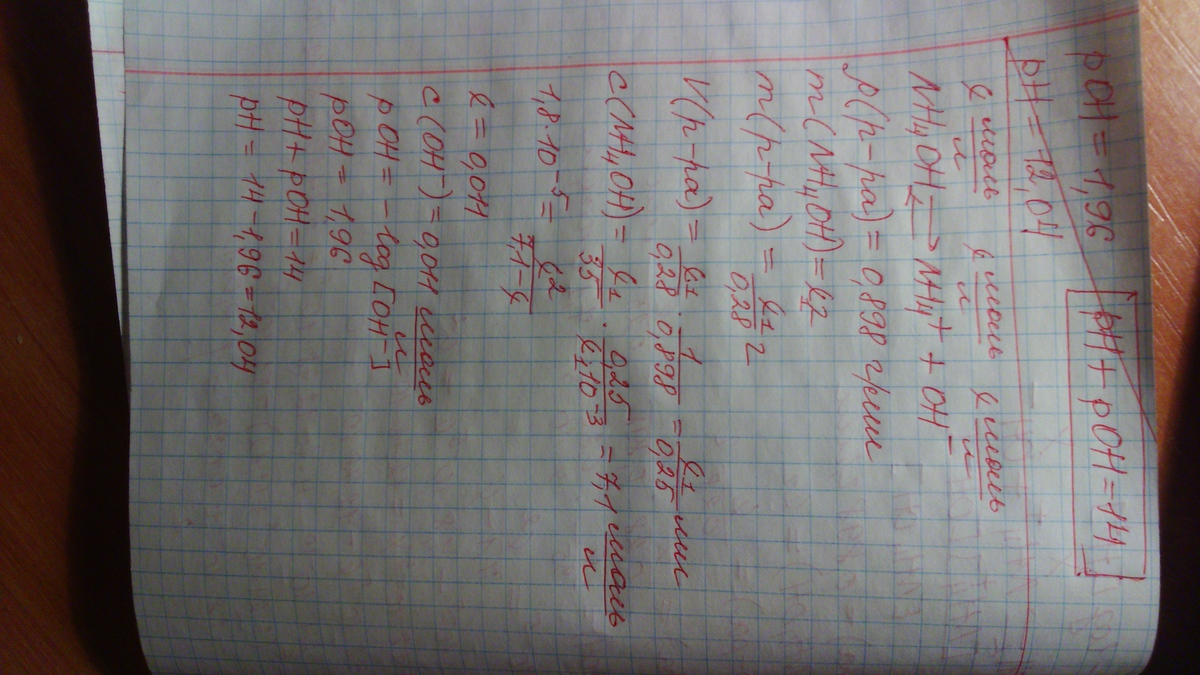 pOH = 1,96
pH + pOH = 14
pH = 12,04
x моль/л x моль/л x моль/л
NH₄OH ⇄ NH₄⁺ + OH⁻
ρ(р-ра) = 0,898 г/мл
m(NH₄OH) =
m(р-ра) = /0,28 г
V(р-ра) = /0,28 · 1/0,898 = /0,25 мл
c(NH₄OH) = /35 · 0,25/ ·10⁻³ = 7,1 моль/л
1,8·10⁻⁵ = x²/7,1-x
x = 0,011
c(OH⁻) = 0,011 моль/л
pOH = -log[OH⁻]
pOH = 1,96
pH + pOH = 14
pH = 14 - 1,96 = 12,04